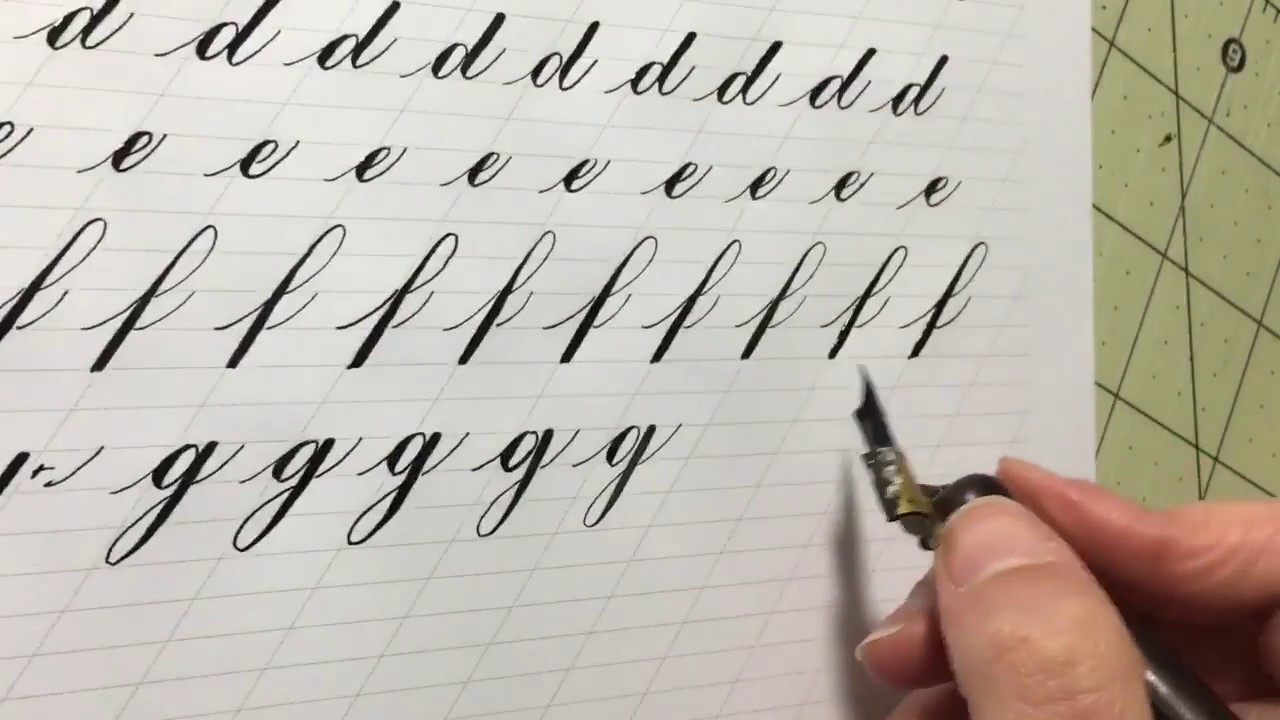 d d d d d d d d d
e e e e e e e e e e
f f f f f f f f f f
g g g g g